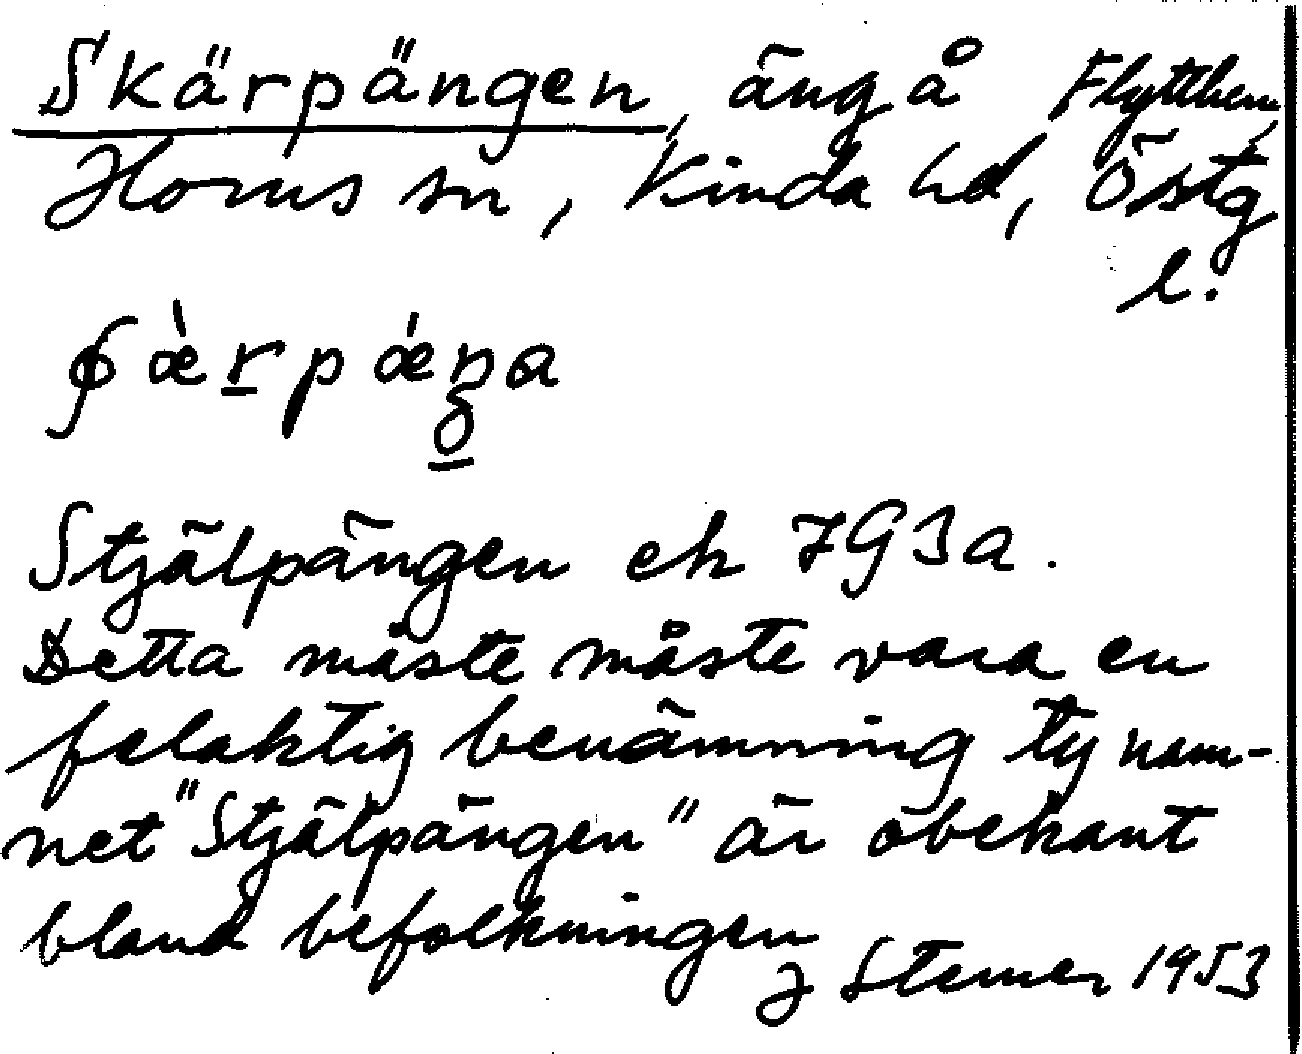 Skärpängen, äng å Flytthem,
Horns sn, Kinda hd, Östg
l.
Stjälpängen ek 7G3a.
Detta måste måste vara en
felaktig benämning ty nam-
net "Stjälpängen" är obekant
bland befolkningen
J Stemer 1953